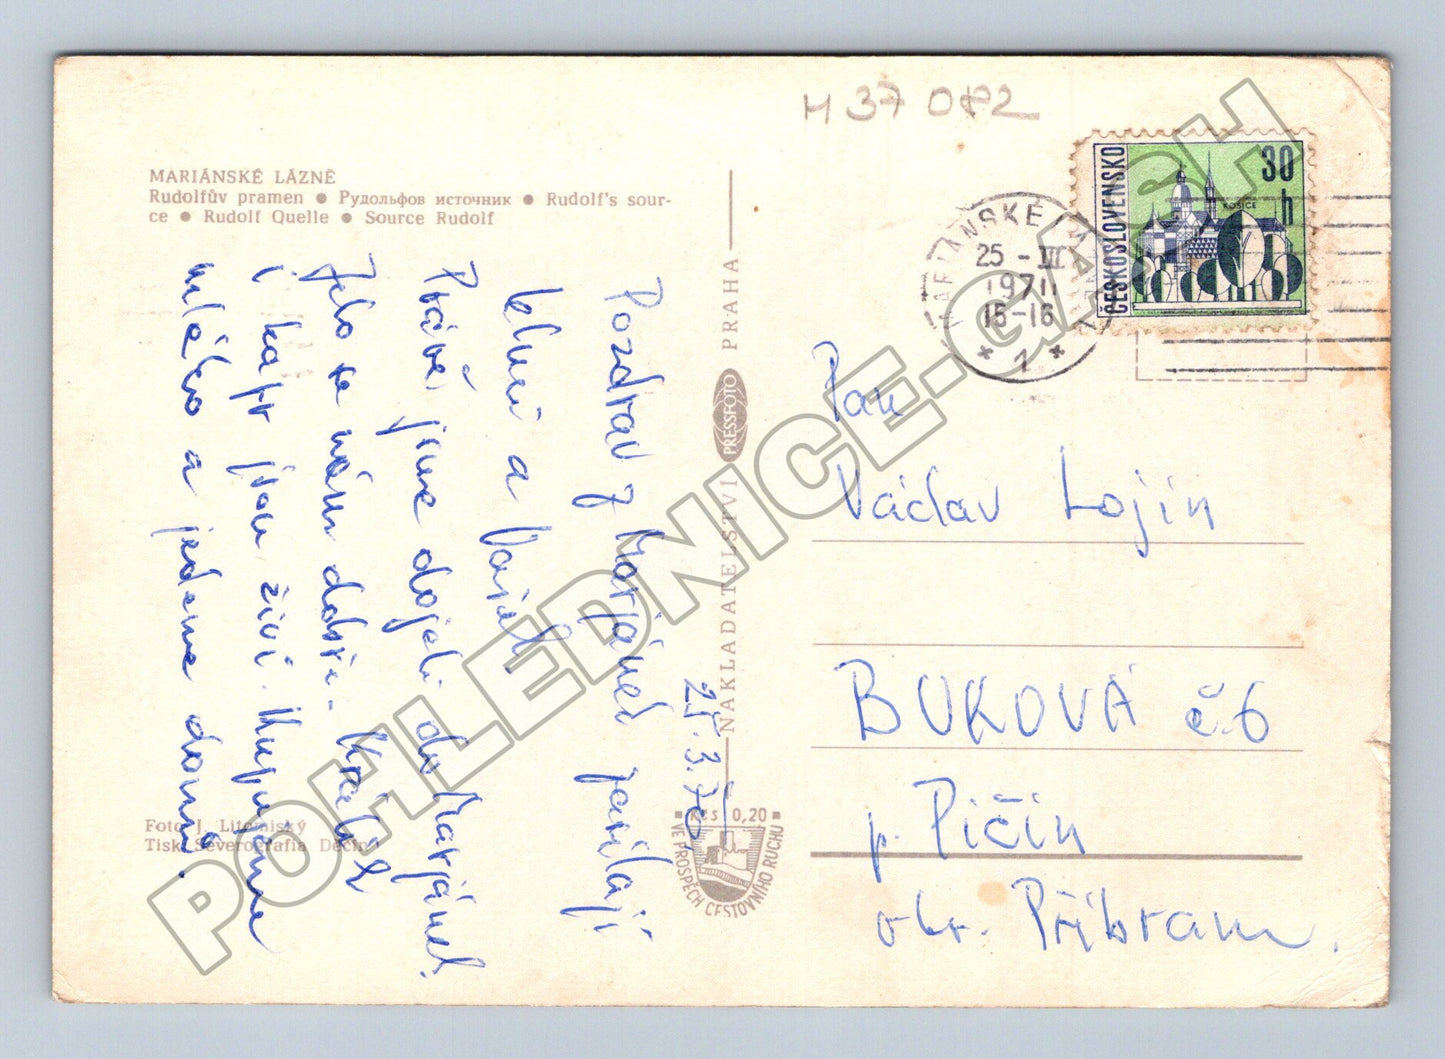 H 37 082
MARIÁNSKÉ LÁZNĚ
Rudolfův pramen ● Рудольфов источник ● Rudolf's sour-
ce ● Rudolf Quelle ● Source Rudolf
25.3.70
Pozdrav z Mariánek posílají
a Vašek
Právě jsme dojeli do Marjánek.
Jelo se nám dobře. Králík
i kapr jsou živí. Kupujeme
mléko a jedeme domů.
Foto J. Litomiský
Tisk Severografia Děčín
NAKLADATELSTVÍ PRESSFOTO PRAHA
Kčs 0,20
VE PROSPĚCH CESTOVNÍHO RUCHU
MARIÁNSKÉ LÁZNĚ
25 -III
1970
15-16
* 1 *
ČESKOSLOVENSKO
30
h
KOŠICE
Pan
Václav Lojín
BUKOVÁ č.6
p. Pičín
okr. Příbram.
POHLEDNICE-GASH